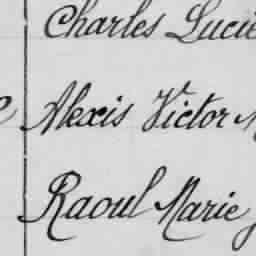 Charles Lucie
Alexis Victor
Raoul Marie